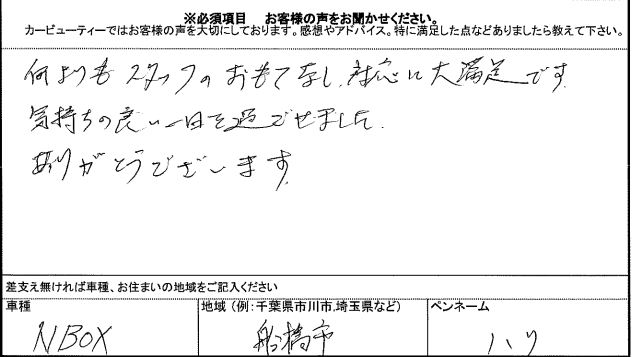 ※必須項目　お客様の声をお聞かせください。
カービューティーではお客様の声を大切にしております。感想やアドバイス。特に満足した点などありましたら教えて下さい。
何よりも スタッフの おもてなし、対応に大満足です.
気持ちの良い一日を過ごせました.
ありがとうございます.
差支え無ければ車種、お住まいの地域をご記入ください
車種
地域（例:千葉県市川市,埼玉県など）
ペンネーム
NBOX
船橋市
ハリ